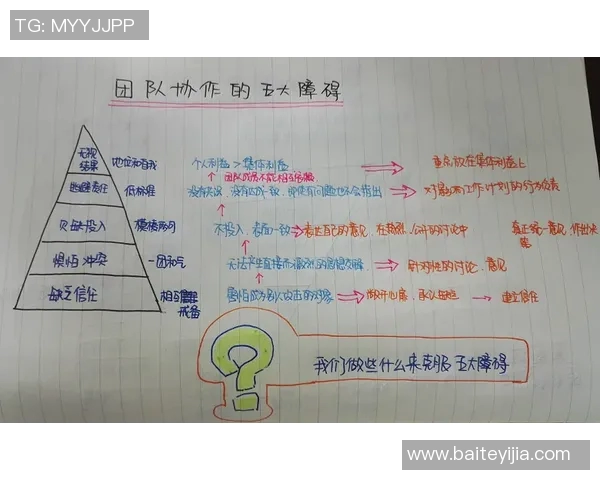 TG: MYYJJPP
团队协作的五大障碍
无视结果 地位和自我 个人利益 > 集体利益 重点放在集体利益上
团队成员不能相互
逃避责任 低标准 没有 对影响工作计划的行为负责
欠缺投入 模棱两可 不投入，表面一致 表达自己的意见，在 公开的讨论中 真正统一意见，作出决定
惧怕冲突 一团和气 无法产生直接而激烈的思想交锋 针对性的讨论、意见
缺乏信任 相互戒备 害怕成为别人攻击的对象 敞开心扉，承认缺短 建立信任
我们做些什么来克服五大障碍
www.baiteyijia.com